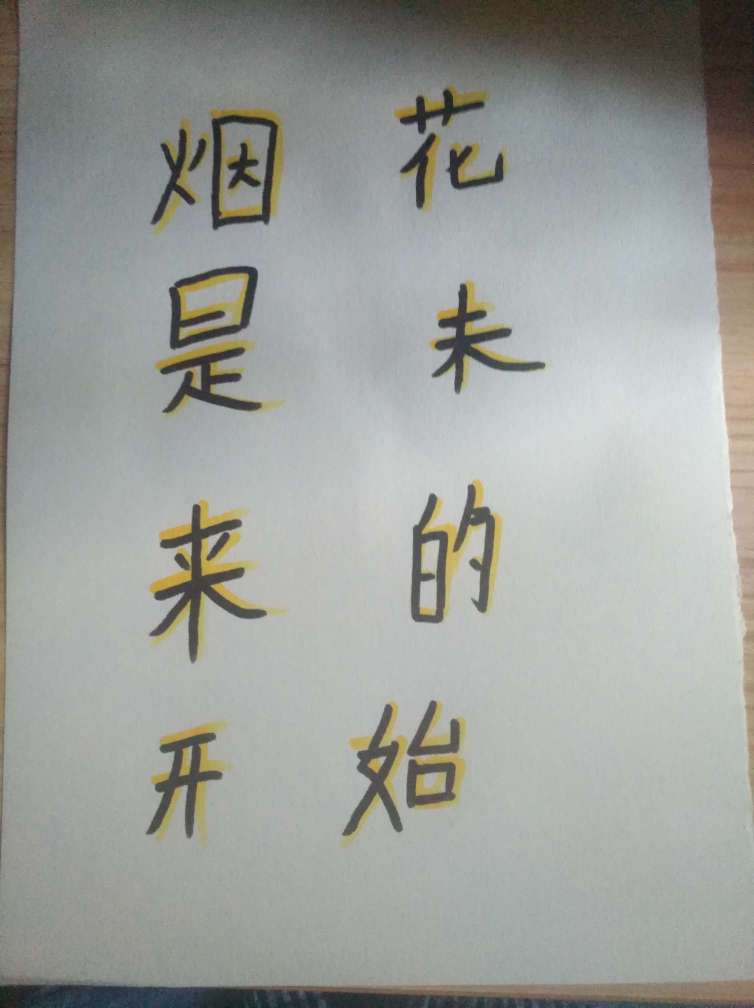 烟花
是未
来的
开始